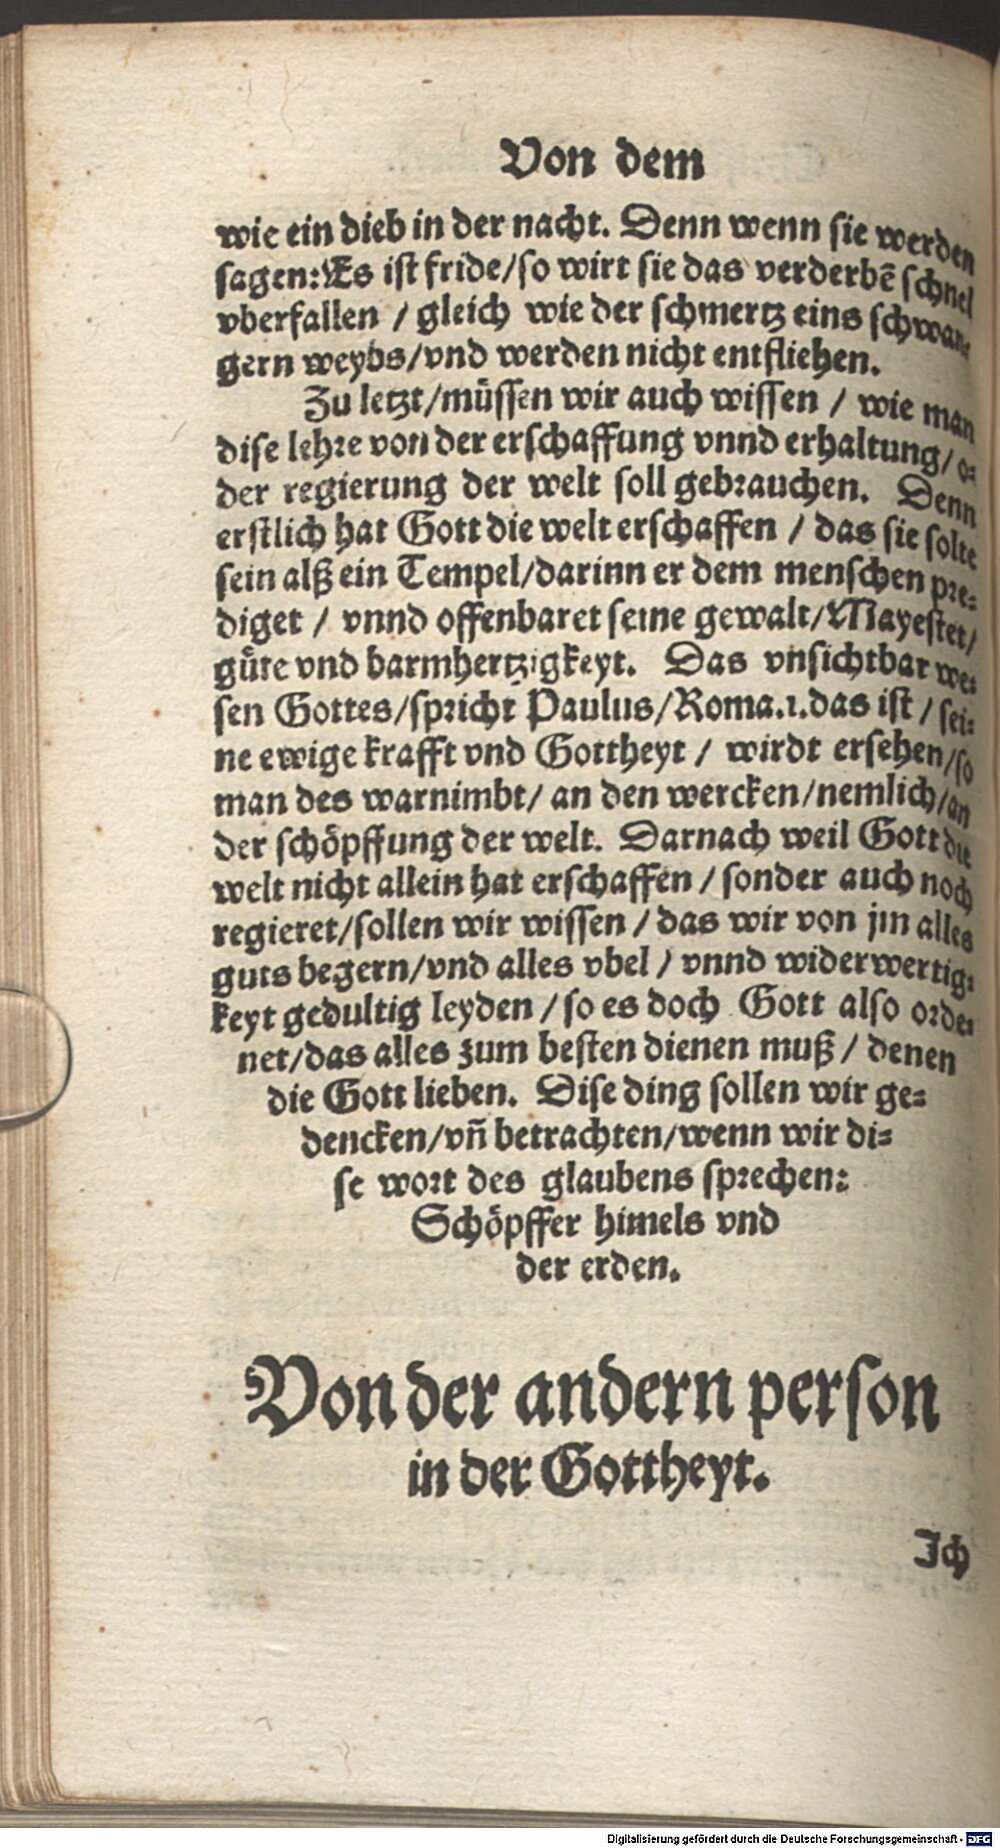 Von dem
wie ein dieb in der nacht. Denn wenn sie werden
sagen: Es ist fride/so wirt sie das verderbē schnel
vberfallen / gleich wie der schmertz eins schwan⸗
gern weybs/vnd werden nicht entfliehen.
Zu letzt/müssen wir auch wissen / wie man
dise lehre von der erschaffung vnnd erhaltung/ o⸗
der regierung der welt soll gebrauchen. Denn
erstlich hat Gott die welt erschaffen / das sie solte
sein alß ein Tempel/darinn er dem menschen pre⸗
diget / vnnd offenbaret seine gewalt/Mayestet/
güte vnd barmhertzigkeyt. Das vnsichtbar we⸗
sen Gottes/spricht Paulus/Roma.1.das ist / sei⸗
ne ewige krafft vnd Gottheyt / wirdt ersehen/so
man des warnimbt/ an den wercken/nemlich/an
der schöpffung der welt. Darnach weil Gott die
welt nicht allein hat erschaffen / sonder auch noch
regieret/sollen wir wissen / das wir von jm alles
guts begern/vnd alles vbel / vnnd widerwertig⸗
keyt gedultig leyden / so es doch Gott also orde⸗
net/das alles zum besten dienen muß / denen
die Gott lieben. Dise ding sollen wir ge⸗
dencken/vñ betrachten/wenn wir di⸗
se wort des glaubens sprechen:
Schöpffer himels vnd
der erden.
Von der andern person
in der Gottheyt.
Ich
Digitalisierung gefördert durch die Deutsche Forschungsgemeinschaft - DFG